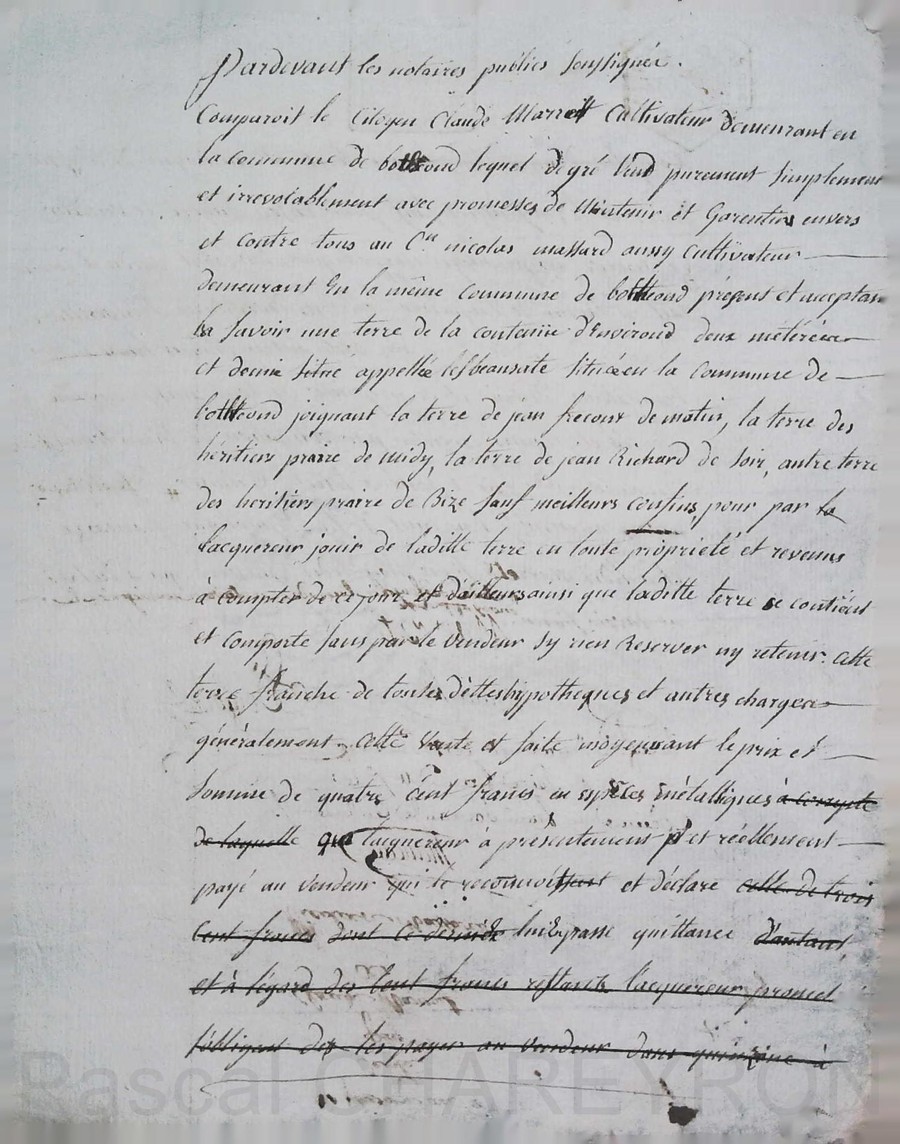 Pardevant les notaires publics soussignés.
Comparoit le Citoyen Claude Cultivateur demeurant en
la commune de botheond lequel de gré vend purement simplement
et irrevocablement avec promesses de Maintenir et Garentir envers
et contre tous au C.en nicolas massard aussy Cultivateur
demeurant En la même Commune de bottheond présent et acceptant
la savoir une terre de la contenue d'Environd deux métérées
et demie appellée située en la Commune de
bottheond joignant la terre de jean de matin, la terre des
héritiers praire de midy, la terre de jean Richard de soir, autre terre
des heritiers praire de Bize sauf meilleurs confins, pour par
Lacquereur jouir de laditte terre en toute propriété et revenus
à compter de ce jour et d'ailleurs ainsi que laditte terre se contient
et comporte sans par le vendeur sy rien Reserver ny retenir. cette
terre franche de toutes dettes hypotheques et autres charges
généralement cette Vente et faite moyennant le prix et
Somme de quatre Cent francs en espèces métalliques à compte
de laquelle que lacquereur à présentement et réellement
payé au vendeur qui le et déclare celle de trois
Cent francs dont ce dernier passe quittance d'autant
et à légard des Cent francs restants l'acquereur promet
les payer au Vendeur dans quinzine à
Pascal CHAREYRON